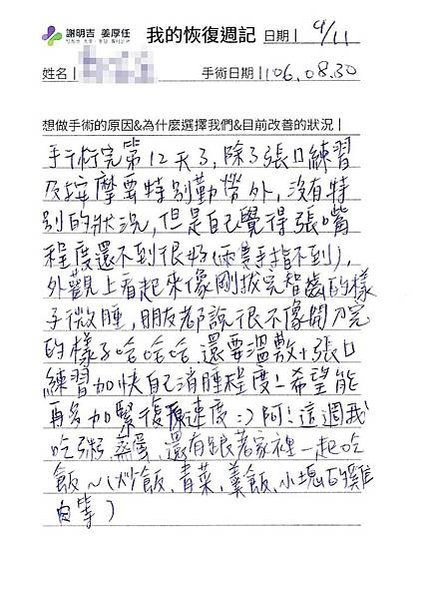 謝明吉 姜厚任
我的恢復週記 日期| 9/11
姓名| 手術日期| 106.08.30
想做手術的原因&為什麼選擇我們&目前改善的狀況|
手術完第12天了,除了張口練習
及按摩要特別勤勞外,沒有特
別的狀況,但是自己覺得張嘴
程度還不到很好(兩隻手指不到),
外觀上看起來像剛拔完智齒的樣
子微腫,朋友都說很不像開刀完
的樣子哈哈哈.還要溫敷+張口
練習加快自己消腫程度!希望能
再多加緊復原速度:)阿!這週我
吃粥、蒸蛋、還有跟著家裡一起吃
飯~(炒飯、青菜、羹飯、小塊的雞
肉等)